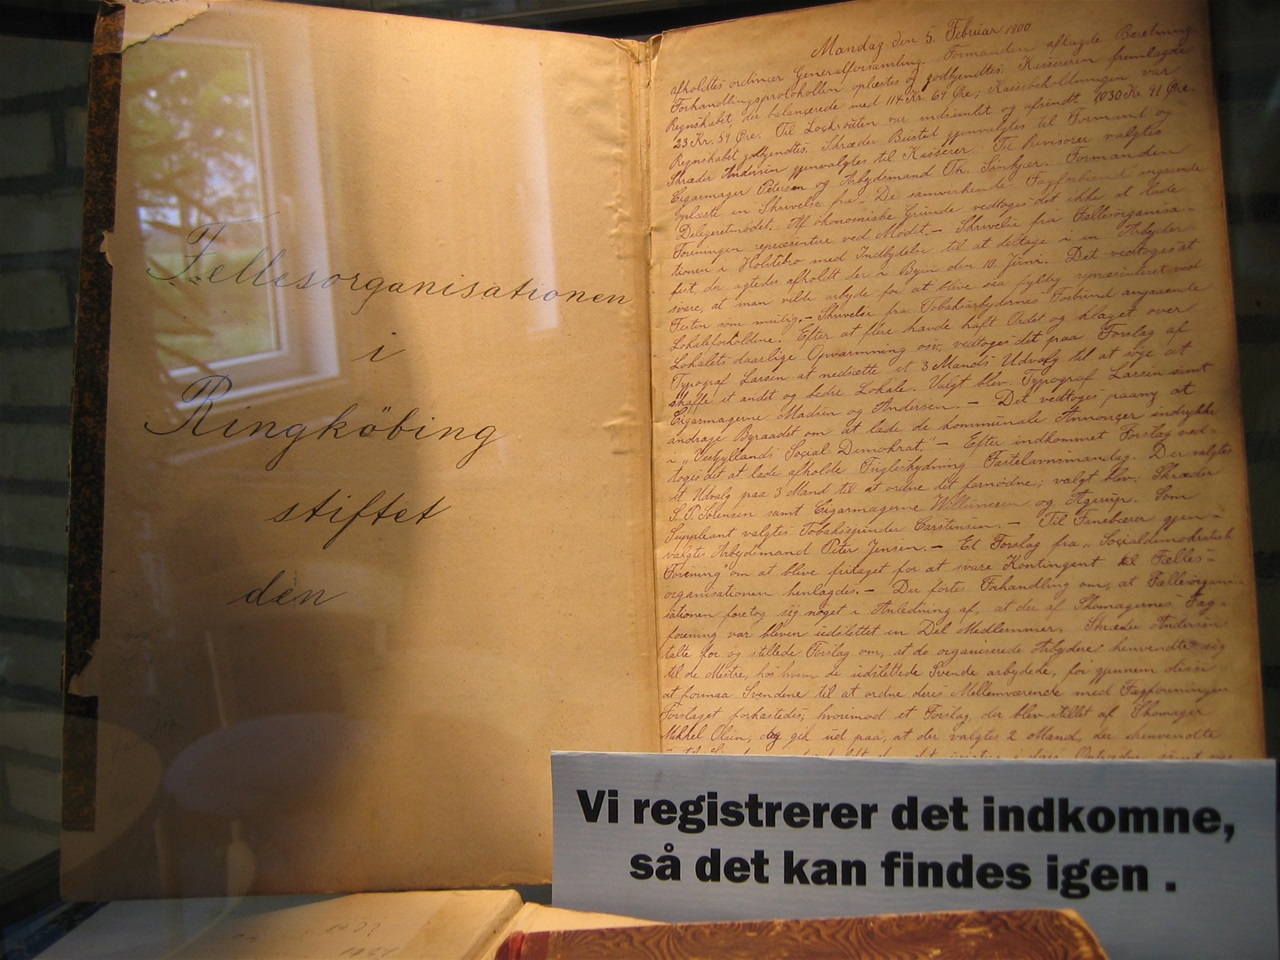 Fællesorganisationen
i
Ringköbing
stiftet
den
Mandag den 5. Februar 1900
afholdtes ordinær Generalforsamling. Formanden aflagde Beretning.
Forhandlingsprotokollen oplæstes og godkjendtes. Kassereren fremlagde
Regnskabet, der balancerede med 114 Kr. 69 Øre; Kassebeholdningen var
23 Kr. 59 Øre. Til Lockvoüten var indsamlet og afsendt 1030 Kr. 91 Øre.
Regnskabet godkjendtes. Skræder Busted gjenvalgtes til Formand og
Skræder Andersen gjenvalgtes til Kasserer. Til Revisorer valgtes
Cigarmager Petersen og Arbejdsmand Th. Sinkjær. Formanden
oplæste en Skrivelse fra De samvirkende Fagforbund angaaende
Delegeretmödet. Af ökonomiske Grunde vedtoges det ikke at lade
Foreningen repræsentere ved Mödet. — Skrivelse fra Fællesorganisa-
tionen i Holstebro med Indbydelse til at deltage i en Arbejder
fest, der agtedes afholdt der i Byen den 10. Juni. Det vedtoges at
svare, at man vilde arbejde for at blive saa fyldig repræsenteret ved
Festen som mulig. — Skrivelse fra Tobaksarbejdernes Forbund angaaende
Lokaleforholdene. Efter at flere havde haft Ordet og klaget over
Lokalets daarlige Opvarmning osv. vedtoges det paa Forslag af
Typograf Larsen at nedsætte et 3 Mands Udvalg til at söge at
skaffe et andet og bedre Lokale. Valgt blev: Typograf Larsen samt
Cigarmagerne Madsen og Andersen. — Det vedtoges paany at
andrage Byraadet om at lade de kommunale Annoncer indrykke
i „Vestjyllands Social-Demokrat". — Efter indkommet Forslag ved-
toges det at lade afholde Fugleskydning Fastelavnsmandag. Der valgtes
et Udvalg paa 3 Mand til at ordne det fornödne; valgt blev: Skræder
S. P. Sörensen samt Cigarmagerne Willumsen og Agerup. Som
Suppleant valgtes Tobaksspinder Carstensen. — Til Fanebærer gjen-
valgtes Arbejdsmand Peter Jensen. — Et Forslag fra „Socialdemokratisk
Forening" om at blive fritaget for at svare Kontingent til Fælles-
organisationen henlagdes. — Der förtes Forhandling om, at Fællesorgani-
sationen foretog sig noget i Anledning af, at der af Skomagernes Fag-
forening var bleven udslettet en Del Medlemmer. Skræder Andersen
talte for og stillede Forslag om, at de organiserede Arbejdere henvendte sig
til de Mestre, hos hvem de udslettede Svende arbejdede, for gjennem disse
at formaa Svendene til at ordne deres Mellemværende med Fagforeningen
Forslaget forkastedes, hvorimod et Forslag, der blev stillet af Skomager
Mikkel Olsen, og gik ud paa, at der valgtes 2 Mand, der henvendte
Vi registrerer det indkomne,
så det kan findes igen .